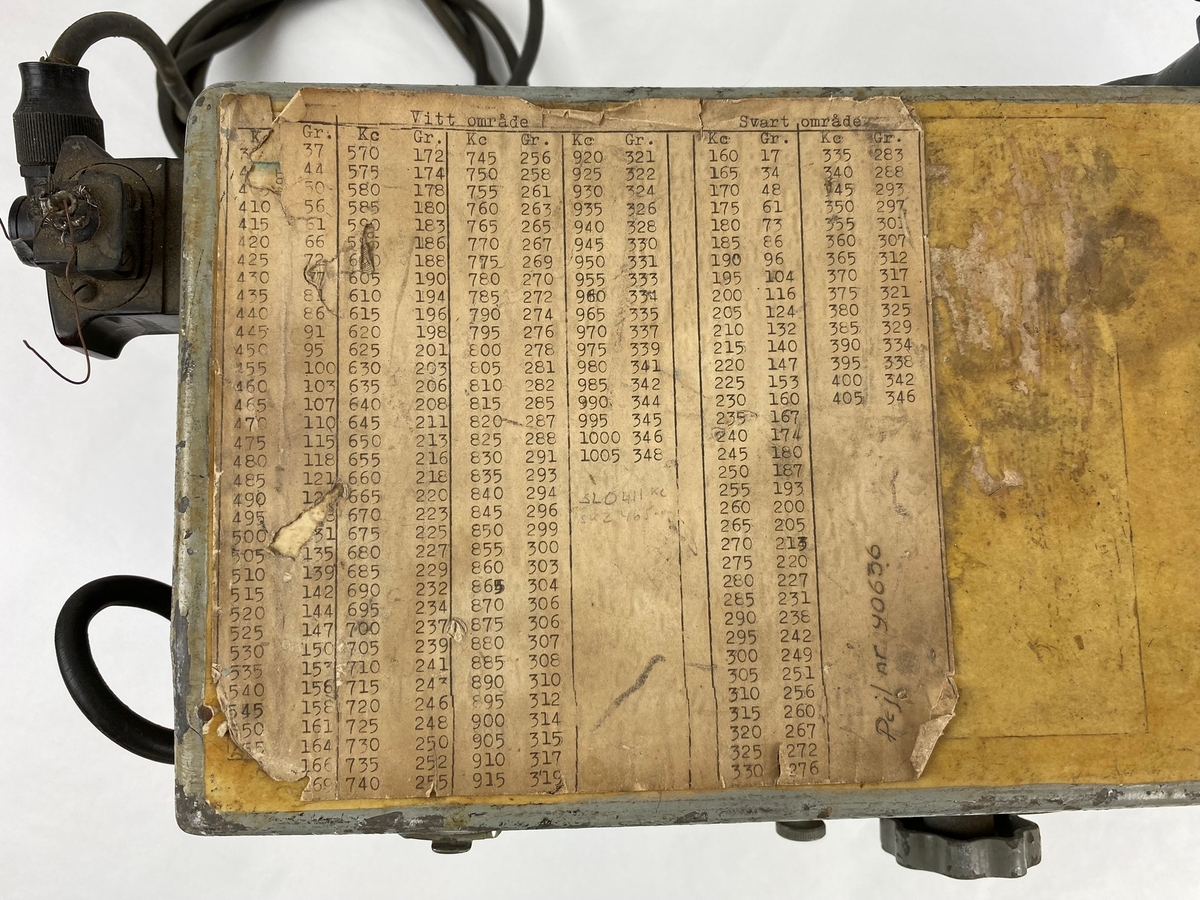 Vitt område Svart område
Gr. Kc Gr. Kc Gr. Kc Gr. Kc Gr. Kc Gr.
37 570 172 745 256 920 321 160 17 335 283
44 575 174 750 258 925 322 165 34 340 288
50 580 178 755 261 930 324 170 48 345 293
410 56 585 180 760 263 935 326 175 61 350 297
415 61 590 183 765 265 940 328 180 73 355 301
420 66 186 770 267 945 330 185 86 360 307
425 72 188 775 269 950 331 190 96 365 312
430 605 190 780 270 955 333 195 104 370 317
435 81 610 194 785 272 960 334 200 116 375 321
440 86 615 196 790 274 965 335 205 124 380 325
445 91 620 198 795 276 970 337 210 132 385 329
450 95 625 201 800 278 975 339 215 140 390 334
455 100 630 203 805 281 980 341 220 147 395 338
460 103 635 206 810 282 985 342 225 153 400 342
465 107 640 208 815 285 990 344 230 160 405 346
470 110 645 211 820 287 995 345 235 167
475 115 650 213 825 288 1000 346 240 174
480 118 655 216 830 291 1005 348 245 180
485 121 660 218 835 293 250 187
490 665 220 840 294 255 193
495 670 223 845 296 260 200
500 131 675 225 850 299 265 205
505 135 680 227 855 300 270 213
510 139 685 229 860 303 275 220
515 142 690 232 865 304 280 227
520 144 695 234 870 306 285 231
525 147 700 237 875 306 290 238
530 150 705 239 880 307 295 242
535 153 710 241 885 308 300 249
540 156 715 890 310 305 251
545 158 720 246 895 312 310 256
550 161 725 248 900 314 315 260
164 730 250 905 315 320 267
166 735 252 910 317 325 272
169 740 255 915 319 330 276
SLO 411 Kc
Pejl nr 40636